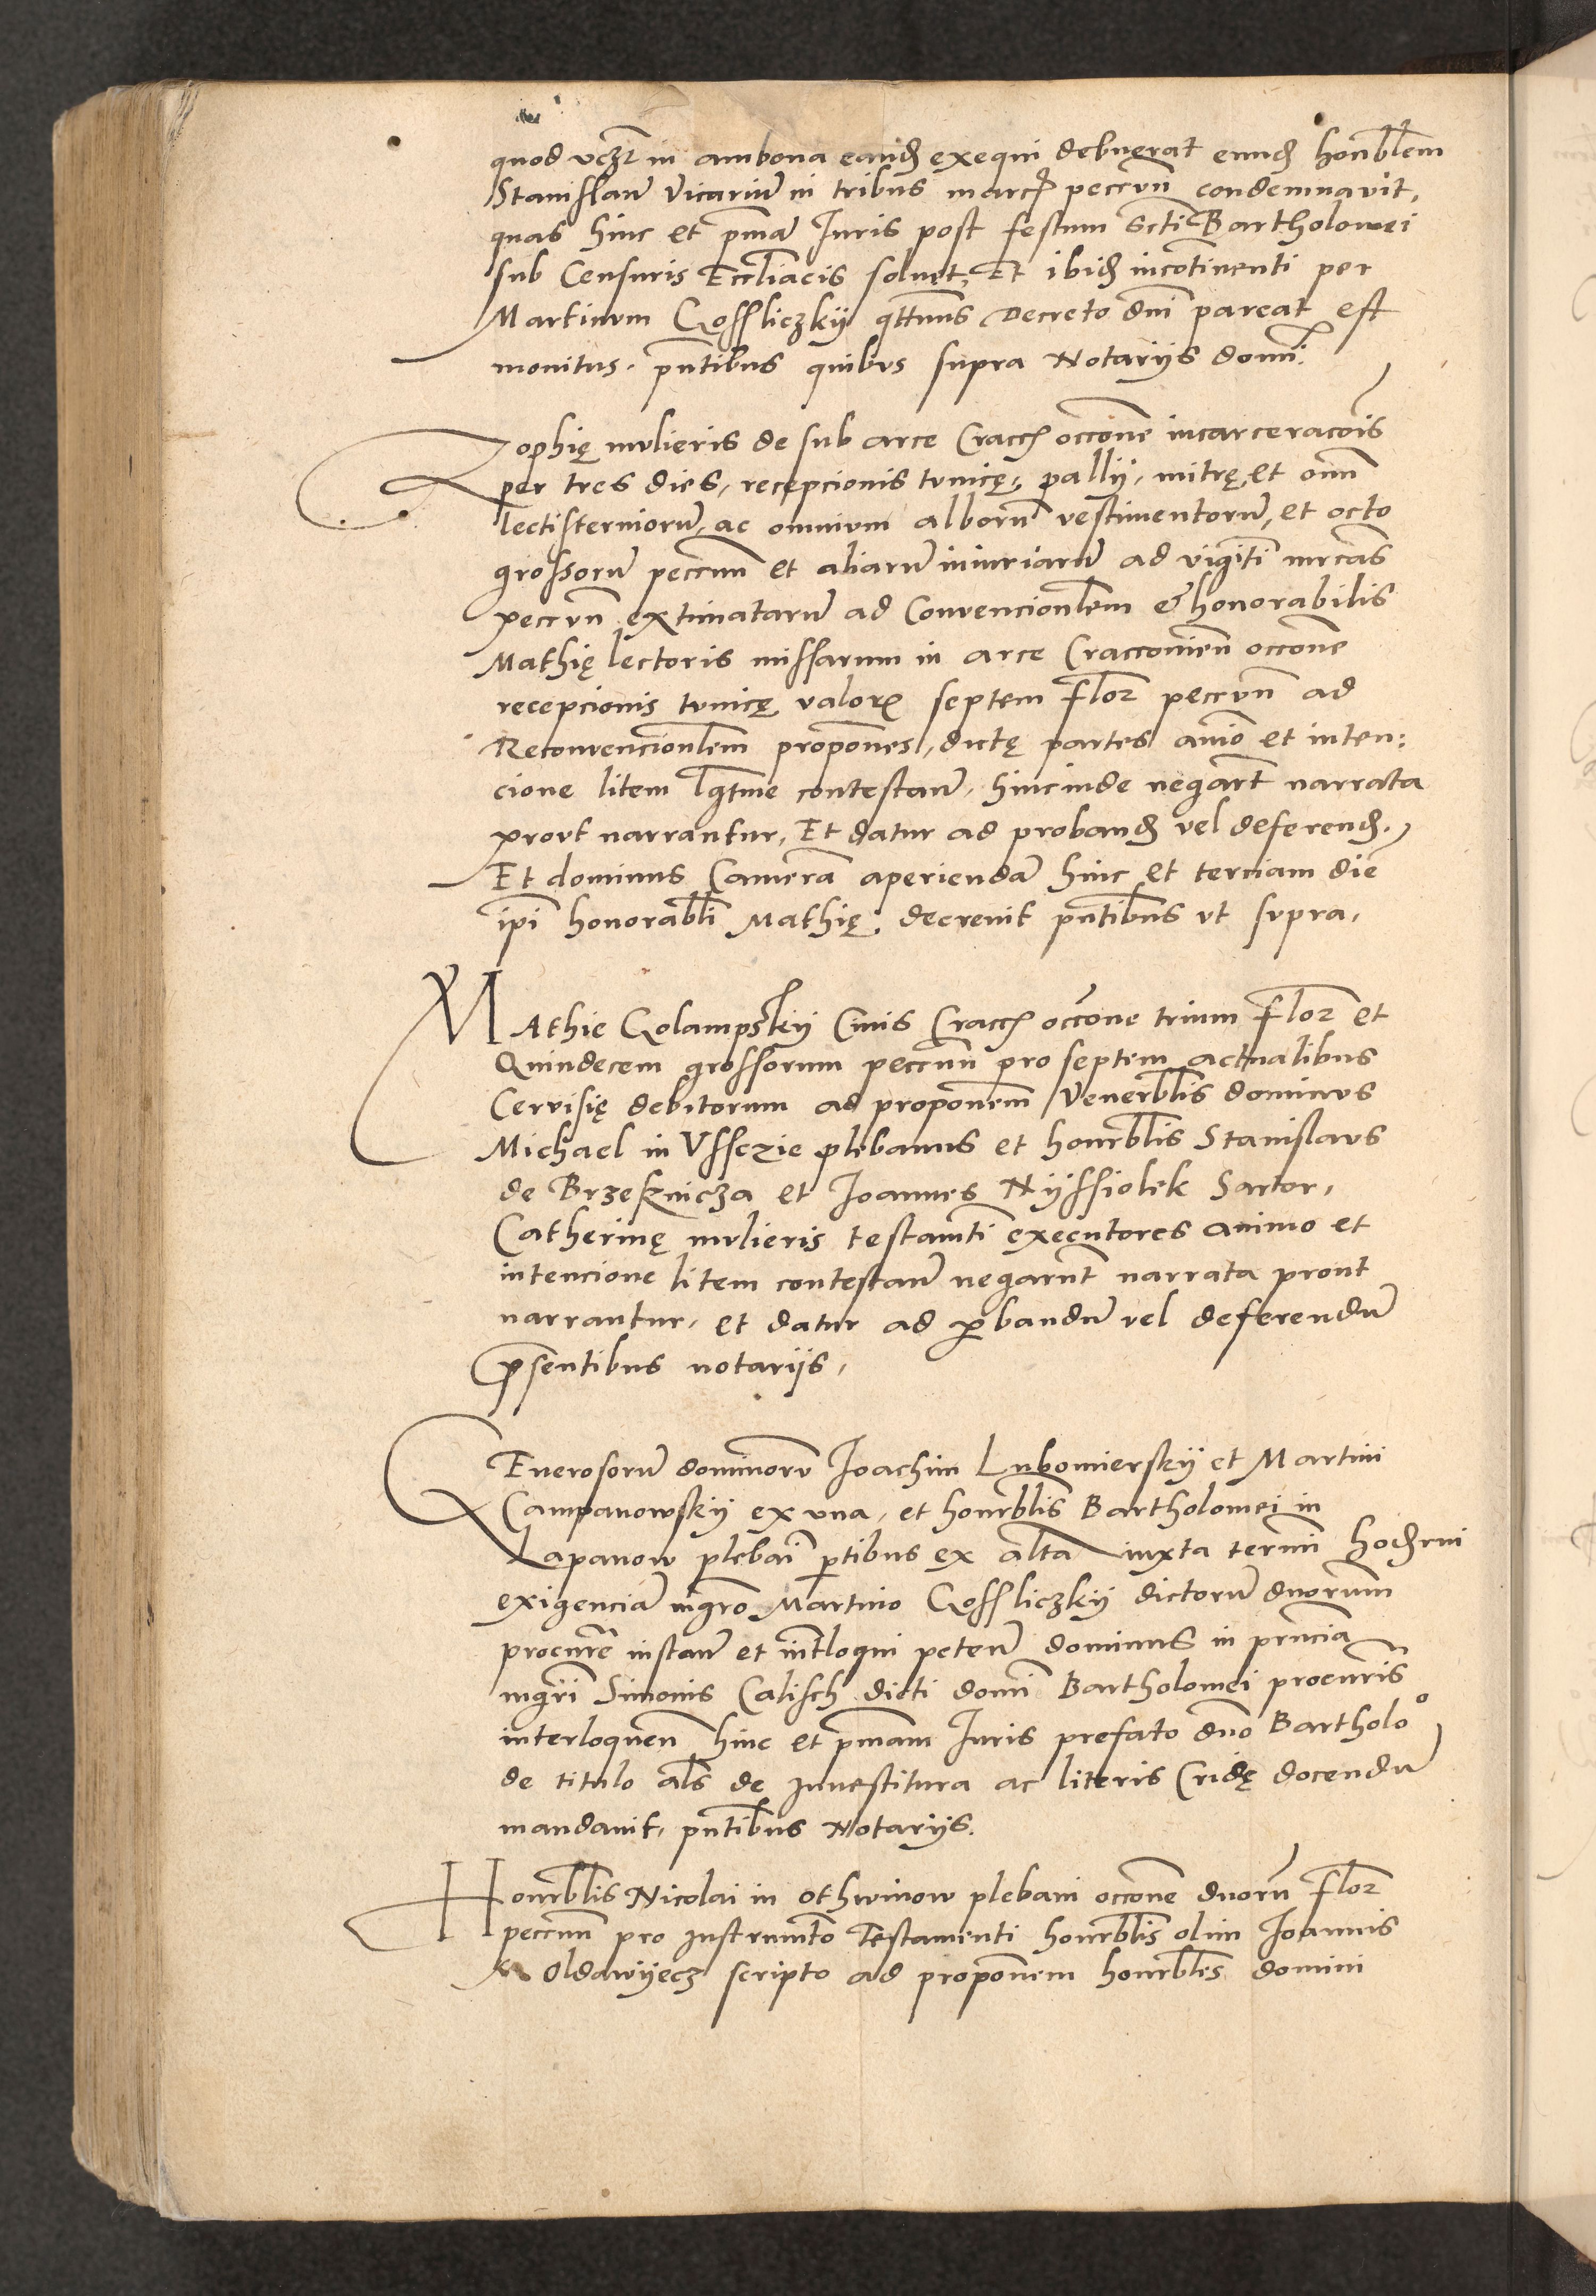 quod vcꝫ in ambona eandꝫ exequi debuerat eundꝫ honblem
Stanislaū Vicariū in tribus marcꝭ peccun̄ condemnavit,
quas hinc et pmā Iuris post festum Scti Bartholomei
sub Censuris Eccliacis soluet, Et ibidꝫ incōtinenti per
Martinum Gossliczkij qttnus Decreto dni pareat est
monitus. pntibus quibus supra Notarijs domi:
Zophię mulieris de sub arce Cracꝭ occone incarceracōis
per tres dies, recepcionis tunicę, pallij, mitrę, et omn̄
lectisterniorū, ac omnium alborū vestimentorū, et octo
grossorū peccun̄ et aliarū iniuriarū ad viginti mrcas
peccun̄ extimatarū ad Convencionlem & honorabilis
Mathię lectoris missarum in arce Craccovien̄ occone
recepcionis tunicę valorꝭ septem flor peccun̄ ad
Reconvencionlem propones, dictę partes anīo et inten:
cione litem lgtme contestanꝭ, hincinde negarт narrata
prout narrantur, Et datur ad probandꝫ vel deferendꝫ,
Et dominus Camerā aperiendā hinc et terciam diē
ipi honorabli Mathię: decrevit pntibus vt supra,
MAthie Golampskij Civis Cracꝭ occone trium flor et
Quindecem grossorum peccun̄ pro septem actualibus
Cervisię debitorum ad proponem Venerblis dominus
Michael in Vssczie plebanus et honrblis Stanislaus
de Brzeznicza et Joannes Nyssiolek Sartor,
Catherinę mulieris testamti executores animo et
intencione litem contestanꝭ negarnt narrata prout
narrantur, et datur ad ꝓbandū vel deferendū
pn̄sentibus notarijs,
GEnerosorū dominorū Joachim Lubomierskij et Martini
Campanowskij ex una, et honrblis Bartholomei in
Lapanow plebani ꝑtibus ex alta iuxta termi hodꝫrni
exigenciā mgro Martino Gossliczkij dictorū duorum
procure instanꝭ et intloqui petenꝭ dominus in pnciā
mgri Simonis Calisch dicti domi Bartholomei procuris
interloquen̄ hinc et pmam Iuris prefato dno Bartholoº
de titulo als de Investitura ac literis Cridę docendū
mandavit, pntibus Notarijs.
Honrblis Nicolai in othwinow plebani occone duorū flor
peccun̄ pro Instrumto Testamenti honrblis olim Joannis
Moldawijecz scripto ad proponem honrblis domini